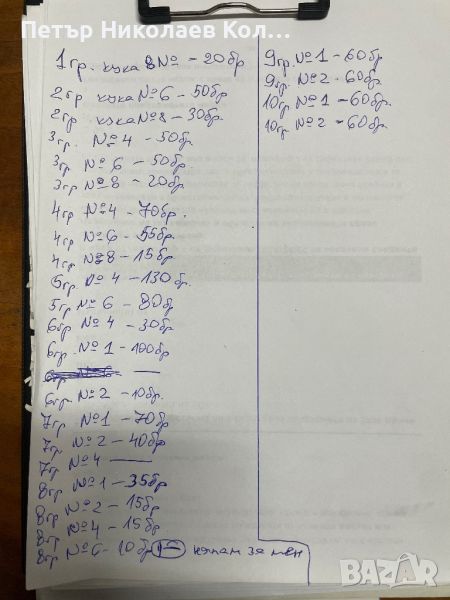 Петър Николаев Кол...
1гр. кука 8№ - 20бр
2гр кука №6 - 50бр
2гр кука №8 - 30бр.
3гр. №4 - 50бр.
3гр №6 - 50бр.
3гр №8 - 20бр.
4гр №4 - 70бр.
4гр №6 - 55бр.
4гр №8 - 15бр
5гр №4 - 130бр.
5гр №6 - 80бр
6гр №4 - 30бр.
6гр №1 - 100бр
6гр. №2 - 10бр.
7гр №1 - 70бр
7гр №2 - 40бр
7гр №4 —
8гр №1 - 35бр
8гр №2 - 15бр
8гр №4 - 15бр
8гр №6 - 10бр нямам за мен
9гр №1 - 60бр
9гр №2 - 60бр.
10гр №1 - 60бр.
10гр №2 - 60бр.
BAZAR